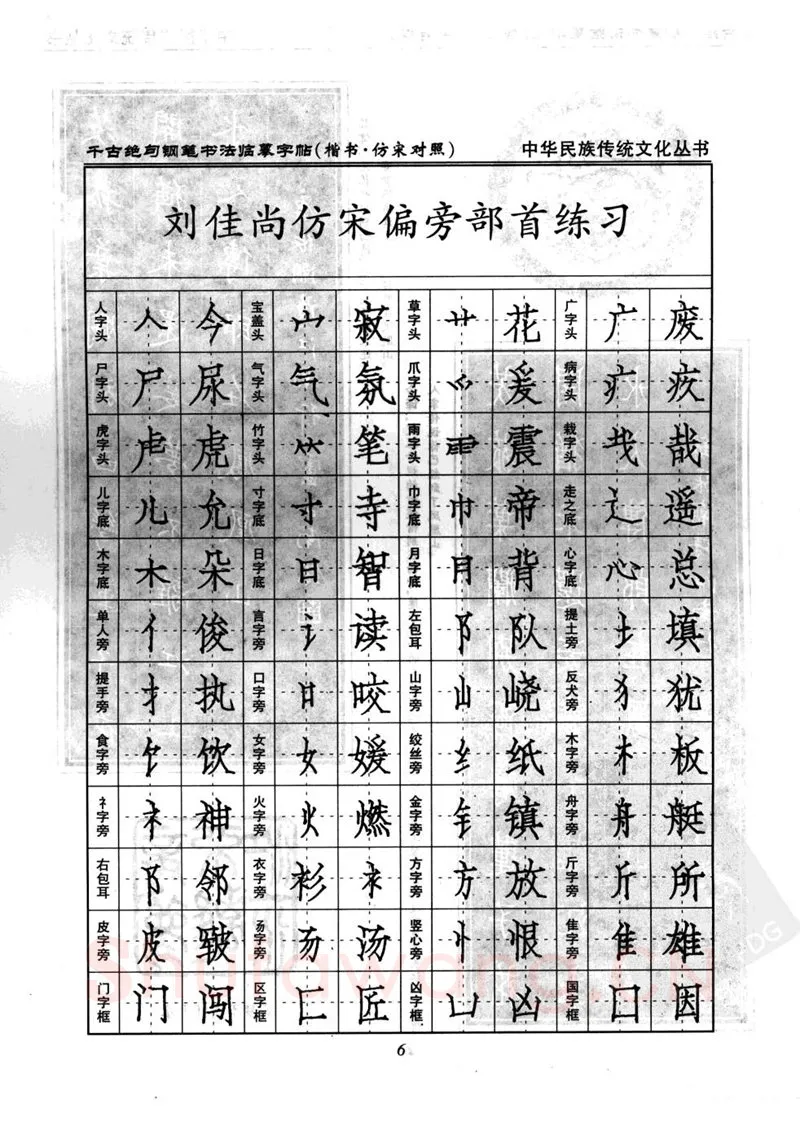 千古绝句钢笔书法临摹字帖(楷书·仿宋对照) 中华民族传统文化丛书
刘佳尚仿宋偏旁部首练习
人字头 人 今 宝盖头 宀 寂 草字头 艹 花 广字头 广 废
尸字头 尸 尿 气字头 气 氛 爪字头 爫 爰 病字头 疒 疾
虎字头 虍 虎 竹字头 𥫗 笔 雨字头 ⻗ 震 栽字头 𢦏 哉
儿字底 儿 允 寸字底 寸 寺 巾字底 巾 帝 走之底 辶 遥
木字底 木 朵 日字底 日 智 月字底 月 背 心字底 心 总
单人旁 亻 俊 言字旁 讠 读 左包耳 阝 队 提土旁 土 填
提手旁 扌 执 口字旁 口 咬 山字旁 山 峣 反犬旁 犭 犹
食字旁 饣 饮 女字旁 女 媛 绞丝旁 纟 纸 木字旁 木 板
礻字旁 礻 神 火字旁 火 燃 金字旁 钅 镇 舟字旁 舟 艇
右包耳 阝 邻 衣字旁 衫 衤 方字旁 方 放 斤字旁 斤 所
皮字旁 皮 皲 汤 竖心旁 忄 恨 隹字旁 隹 雄
门字框 门 闯 区字框 匚 匠 凶字框 凵 凶 国字框 囗 因
6
Shufawang.cn
DG